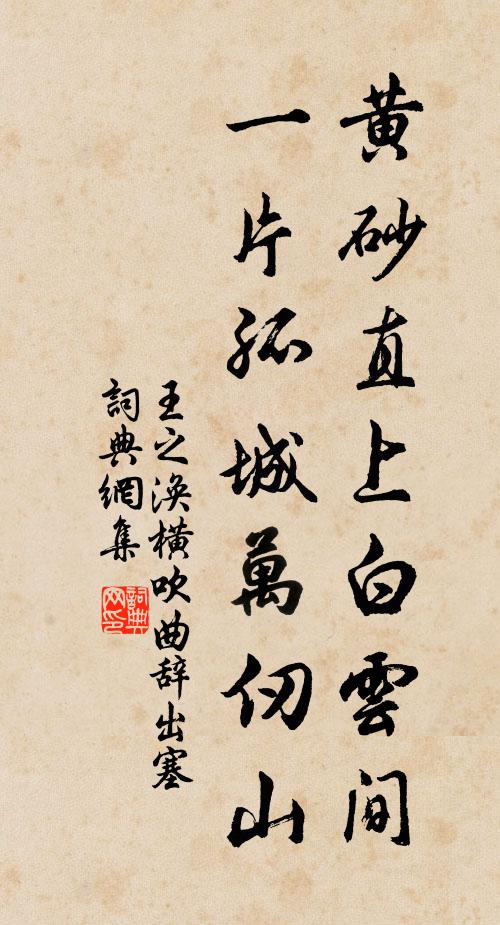 黄砂直上白雲間
一片孤城萬仞山
王之渙橫吹曲辞出塞
詞典網集
詞典网印